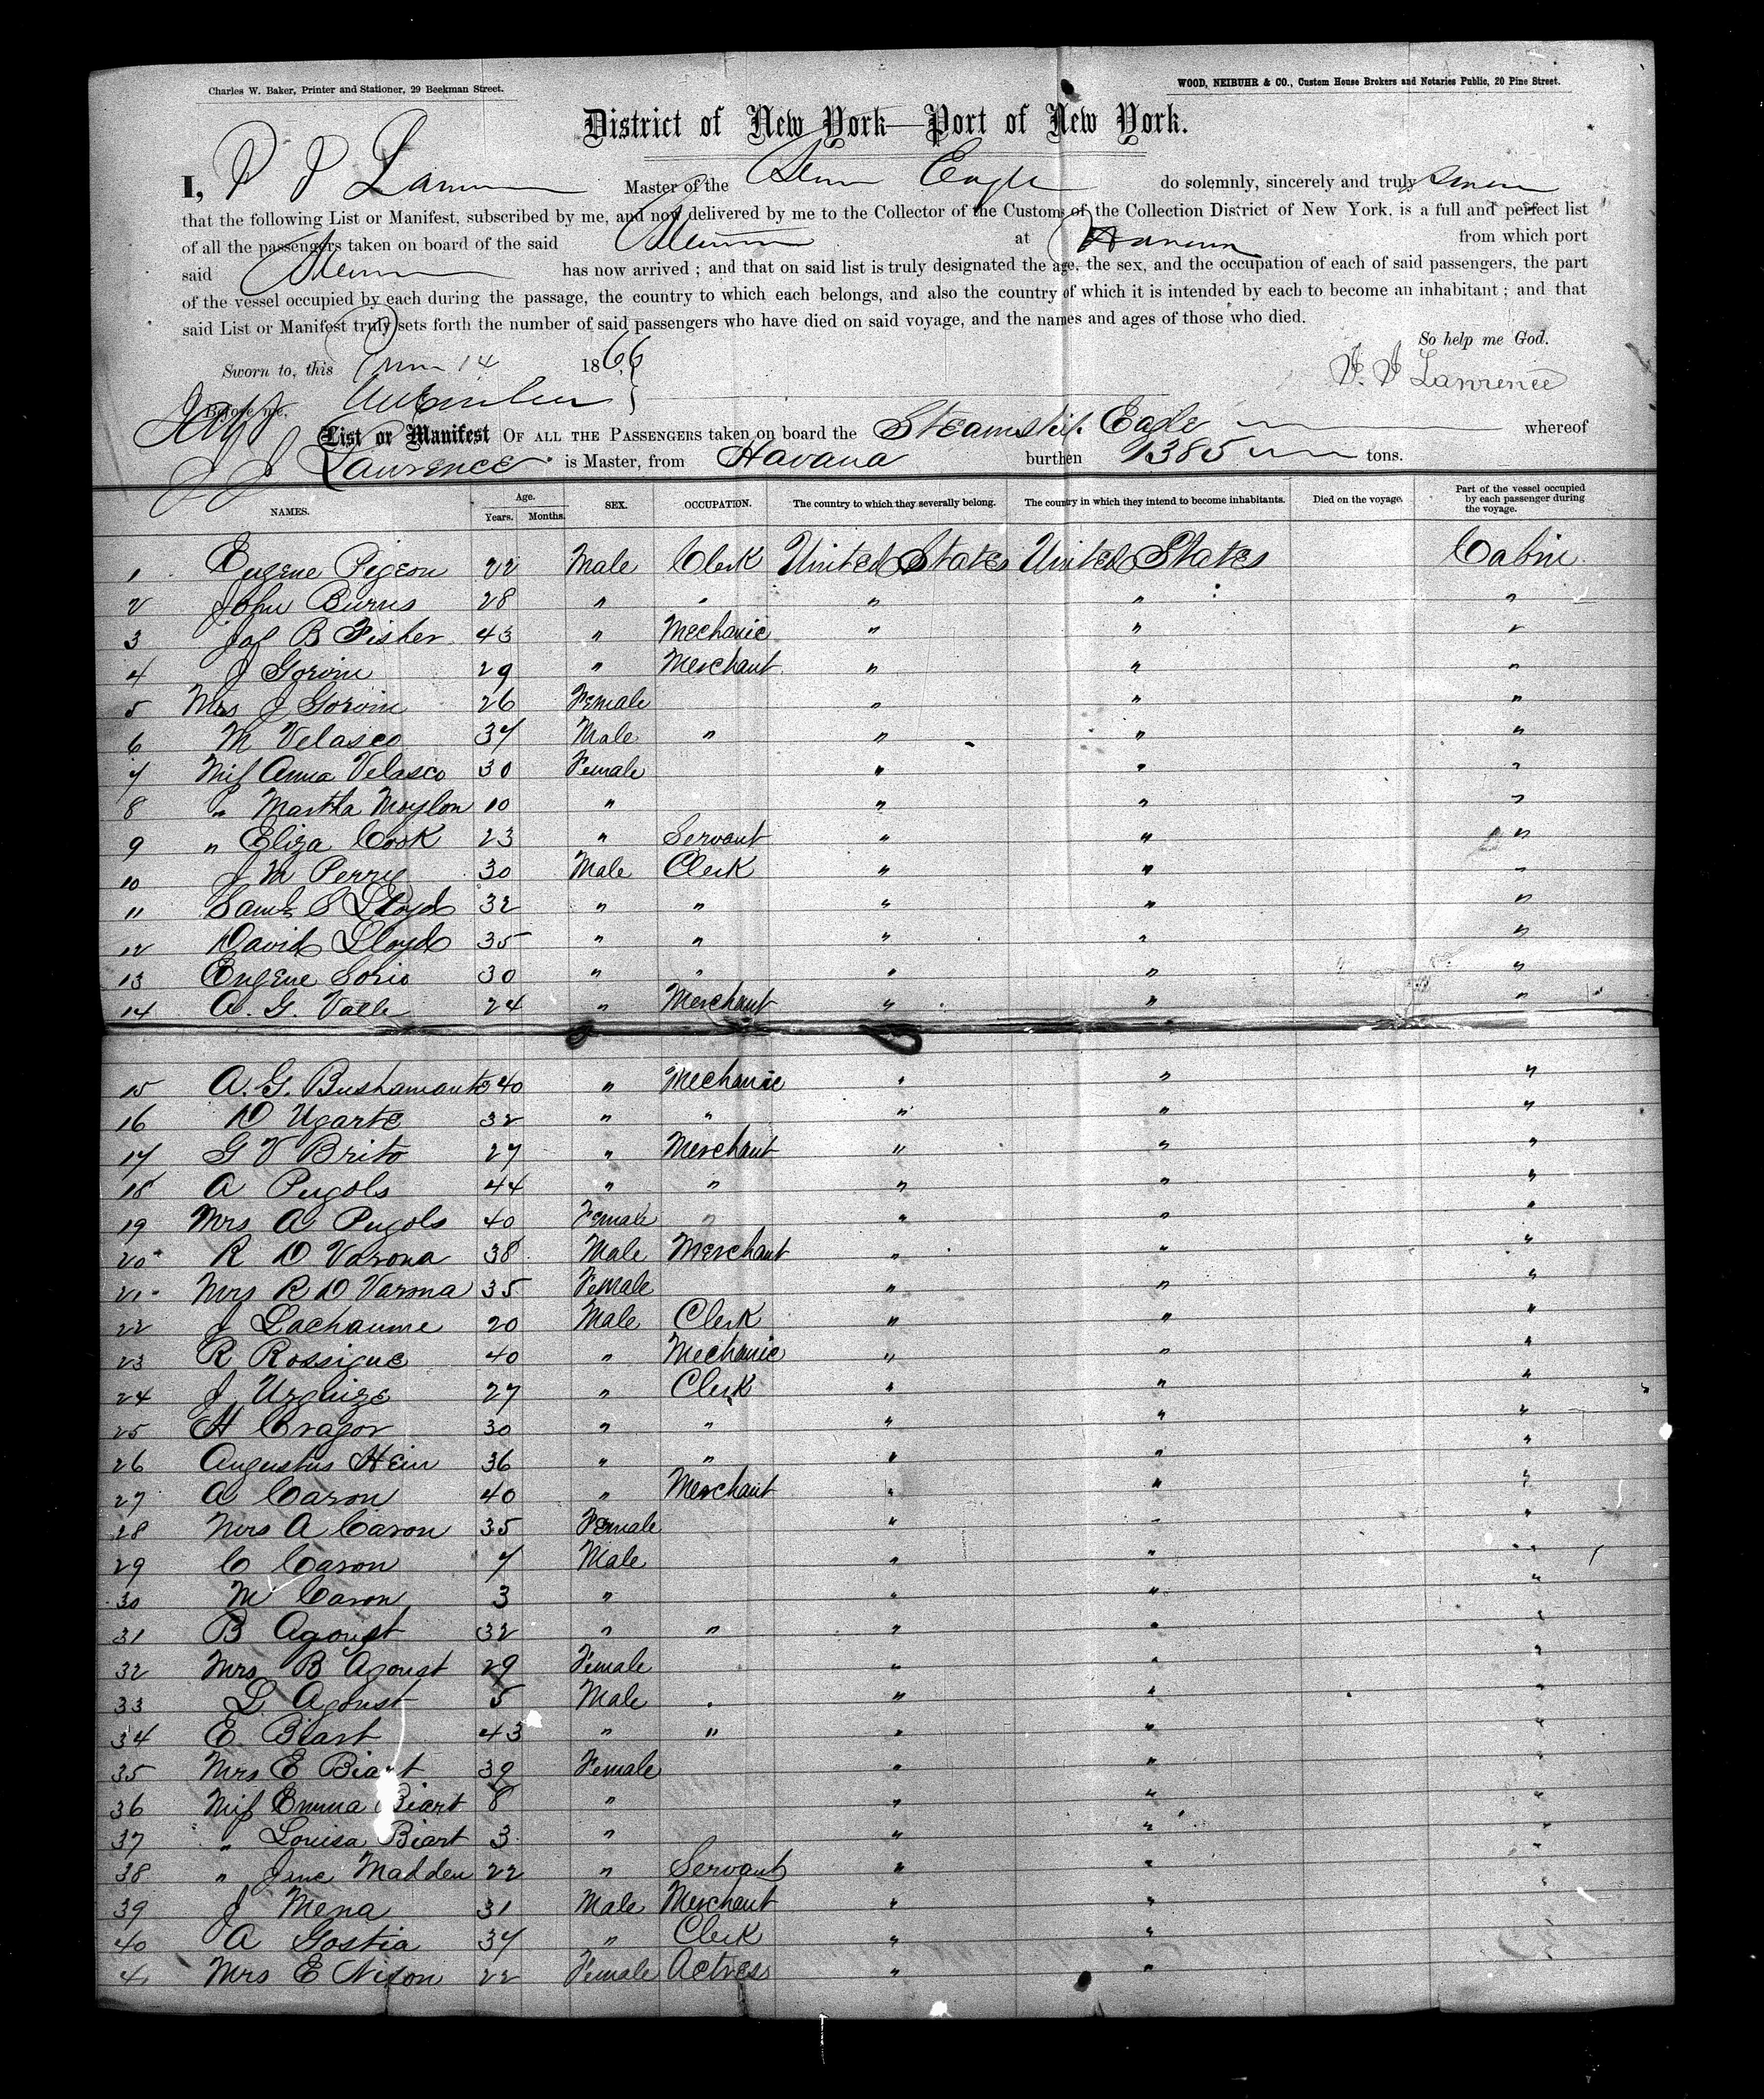 Charles W. Baker, Printer and Stationer, 29 Beekman Street.
WOOD, NEIBUHR & CO., Custom House Brokers and Notaries Public, 20 Pine Street.
District of New York—Port of New York.
I, Master of the Eagle do solemnly, sincerely and truly swear
that the following List or Manifest, subscribed by me, and now delivered by me to the Collector of the Customs of the Collection District of New York, is a full and perfect list
of all the passengers taken on board of the said at Havana from which port
said has now arrived ; and that on said list is truly designated the age, the sex, and the occupation of each of said passengers, the part
of the vessel occupied by each during the passage, the country to which each belongs, and also the country of which it is intended by each to become an inhabitant ; and that
said List or Manifest truly sets forth the number of said passengers who have died on said voyage, and the names and ages of those who died.
So help me God.
Sworn to, this 14 1866
Lawrence
Before me,
List or Manifest OF ALL THE PASSENGERS taken on board the Steamship Eagle whereof
Lawrence is Master, from Havana burthen 1385 tons.
NAMES. Age. Years. Months. SEX. OCCUPATION. The country to which they severally belong. The country in which they intend to become inhabitants. Died on the voyage. Part of the vessel occupied by each passenger during the voyage.
1 Eugene Pigeon 22 Male Clerk United States United States Cabin
2 John Burns 28 " " " " "
3 Jas B Fisher 43 " Mechanic " " "
4 J Gorvin 29 " Merchant " " "
5 Mrs J Gorvin 26 Female " " "
6 M Velasco 37 Male " " " "
7 Miss Anna Velasco 30 Female " " "
8 " Martha Moylon 10 " " " "
9 " Eliza Cook 23 " Servant " " "
10 J M Perry 30 Male Clerk " " "
11 Saml S Lloyd 32 " " " " "
12 David Lloyd 35 " " " " "
13 Eugene Soria 30 " " " " "
14 A. G. Valle 24 " Merchant " " "
15 A. G. Bushamante 40 " Mechanic " " "
16 D Ugarte 32 " " " " "
17 G V Brito 27 " Merchant " " "
18 A Pugols 44 " " " " "
19 Mrs A Pugols 40 Female " " " "
20 R D Varona 38 Male Merchant " " "
21 Mrs R D Varona 35 Female " " "
22 J Lachaume 20 Male Clerk " " "
23 R Rossigue 40 " Mechanic " " "
24 J Urquize 27 " Clerk " " "
25 H Cragor 30 " " " " "
26 Augustus Hein 36 " " " " "
27 A Caron 40 " Merchant " " "
28 Mrs A Caron 35 Female " " "
29 C Caron 7 Male " " "
30 M Caron 3 " " " "
31 B Agoust 32 " " " " "
32 Mrs B Agoust 29 Female " " "
33 L Agoust 5 Male " " "
34 E. Biart 43 " " " " "
35 Mrs E Biart 39 Female " " "
36 Miss Emma Biart 8 " " " "
37 " Louisa Biart 3 " " " "
38 " Jane Madden 22 " Servant " " "
39 J Mena 31 Male Merchant " " "
40 A Gostia 37 " Clerk " "
41 Mrs E Nixon 22 Female Actress " "